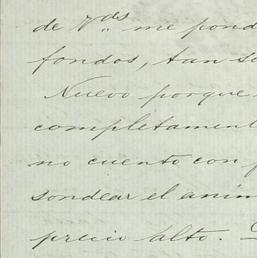 de Vds me pond
fondos, tan so
Nuevo porque
completament
no cuento con p
sondear el anim
precio alto.